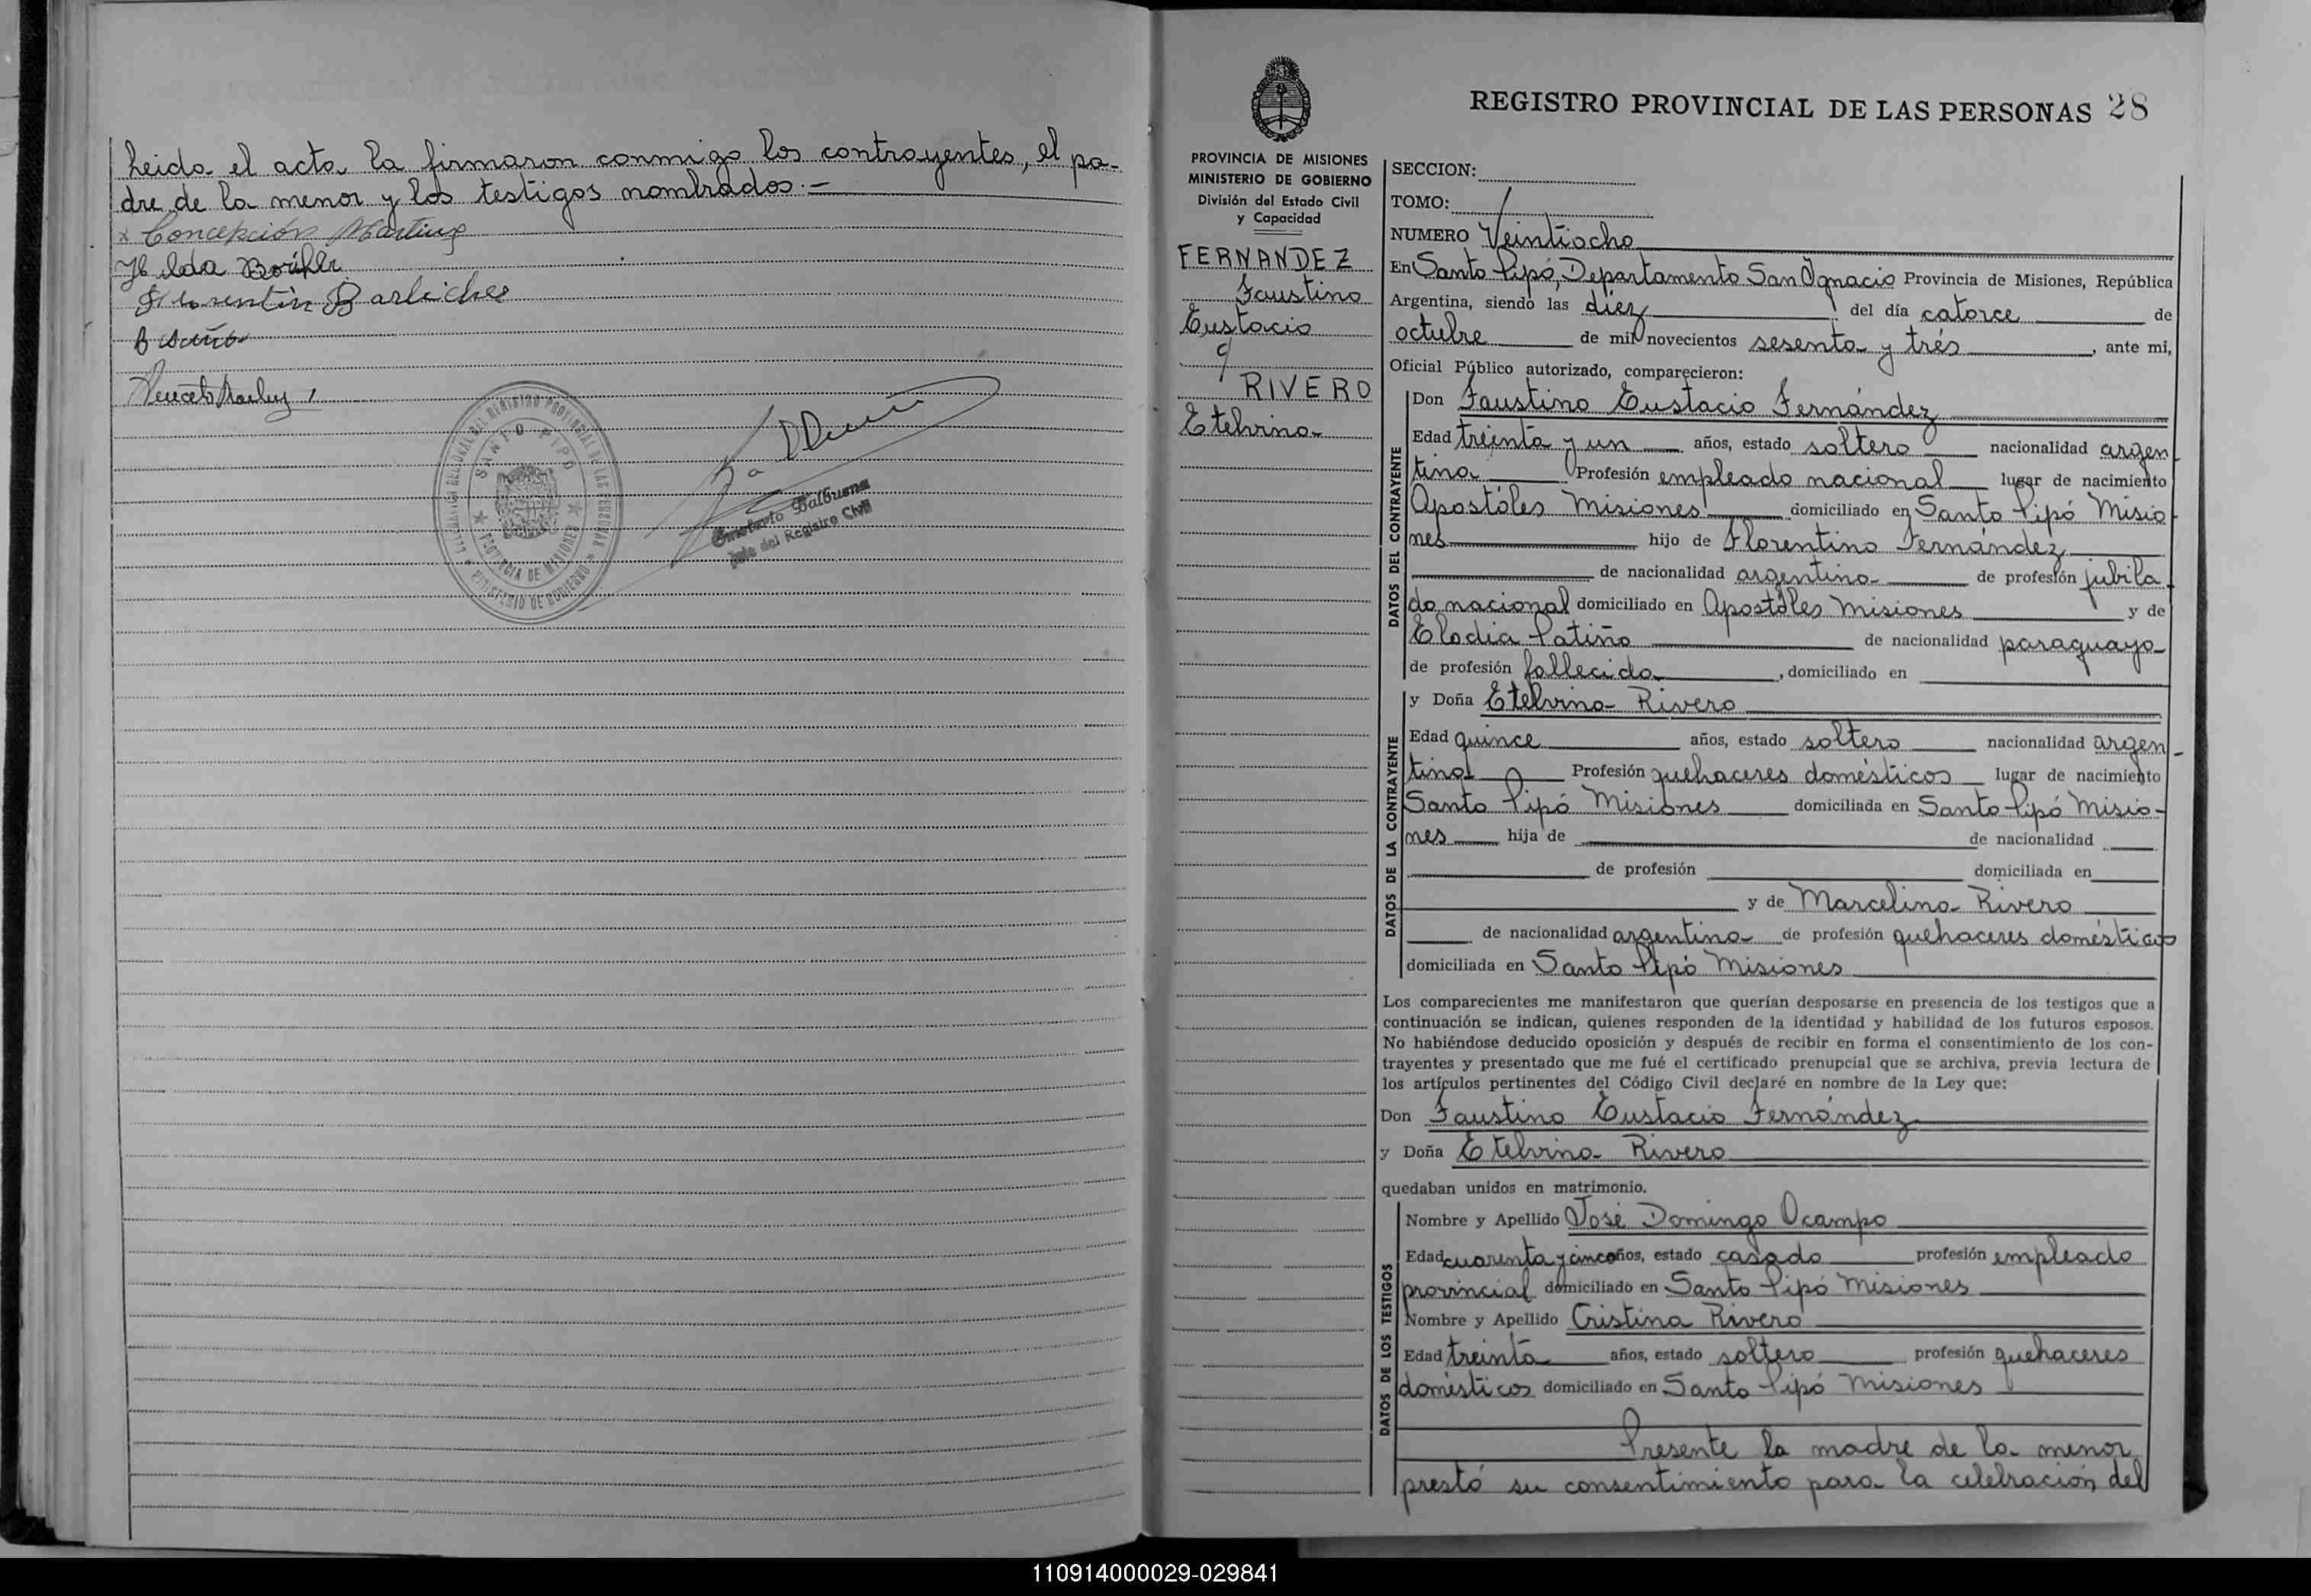 Leida el acta la firmaron conmigo los contrayentes, el pa-
dre de la menor y los testigos nombrados.-
x Concepción Martinez
Hilda
Florentin
SANTO PIPO
PROVINCIA DE MISIONES
MINISTERIO DE GOBIERNO
Balbuena
Jefe del Registro Civil
REGISTRO PROVINCIAL DE LAS PERSONAS 28
PROVINCIA DE MISIONES
MINISTERIO DE GOBIERNO
División del Estado Civil
y Capacidad
FERNANDEZ
Faustino
Eustacio
c/
RIVERO
Etelvina
SECCION:
TOMO:
NUMERO Veintiocho
En Santo Pipó, Departamento San Ignacio Provincia de Misiones, República
Argentina, siendo las diez del día catorce de
octubre de mil novecientos sesenta y trés, ante mi,
Oficial Público autorizado, comparecieron:
DATOS DEL CONTRAYENTE
Don Faustino Eustacio Fernández
Edad treinta y un años, estado soltero nacionalidad argen
tina Profesión empleado nacional lugar de nacimiento
Apostóles Misiones domiciliado en Santo Pipó Misio
nes hijo de Florentino Fernández
de nacionalidad argentina de profesión jubila
do nacional domiciliado en Apostóles Misiones y de
Elodia Patiño de nacionalidad paraguaya
de profesión fallecida, domiciliado en
DATOS DE LA CONTRAYENTE
y Doña Etelvina Rivero
Edad quince años, estado soltera nacionalidad argen-
tina Profesión quehaceres domésticos lugar de nacimiento
Santo Pipó Misiones domiciliada en Santo Pipó Misio-
nes hija de de nacionalidad
de profesión domiciliada en
y de Marcelina Rivero
de nacionalidad argentina de profesión quehaceres domésticos
domiciliada en Santo Pipó Misiones
Los comparecientes me manifestaron que querían desposarse en presencia de los testigos que a
continuación se indican, quienes responden de la identidad y habilidad de los futuros esposos.
No habiéndose deducido oposición y después de recibir en forma el consentimiento de los con-
trayentes y presentado que me fué el certificado prenupcial que se archiva, previa lectura de
los artículos pertinentes del Código Civil declaré en nombre de la Ley que:
Don Faustino Eustacio Fernández
y Doña Etelvina Rivero
quedaban unidos en matrimonio.
DATOS DE LOS TESTIGOS
Nombre y Apellido José Domingo Ocampo
Edad cuarenta y cinco años, estado casado profesión empleado
provincial domiciliado en Santo Pipó Misiones
Nombre y Apellido Cristina Rivero
Edad treinta años, estado soltera profesión quehaceres
domésticos domiciliado en Santo Pipó Misiones
Presente la madre de la menor
prestó su consentimiento para la celebración del
110914000029-029841